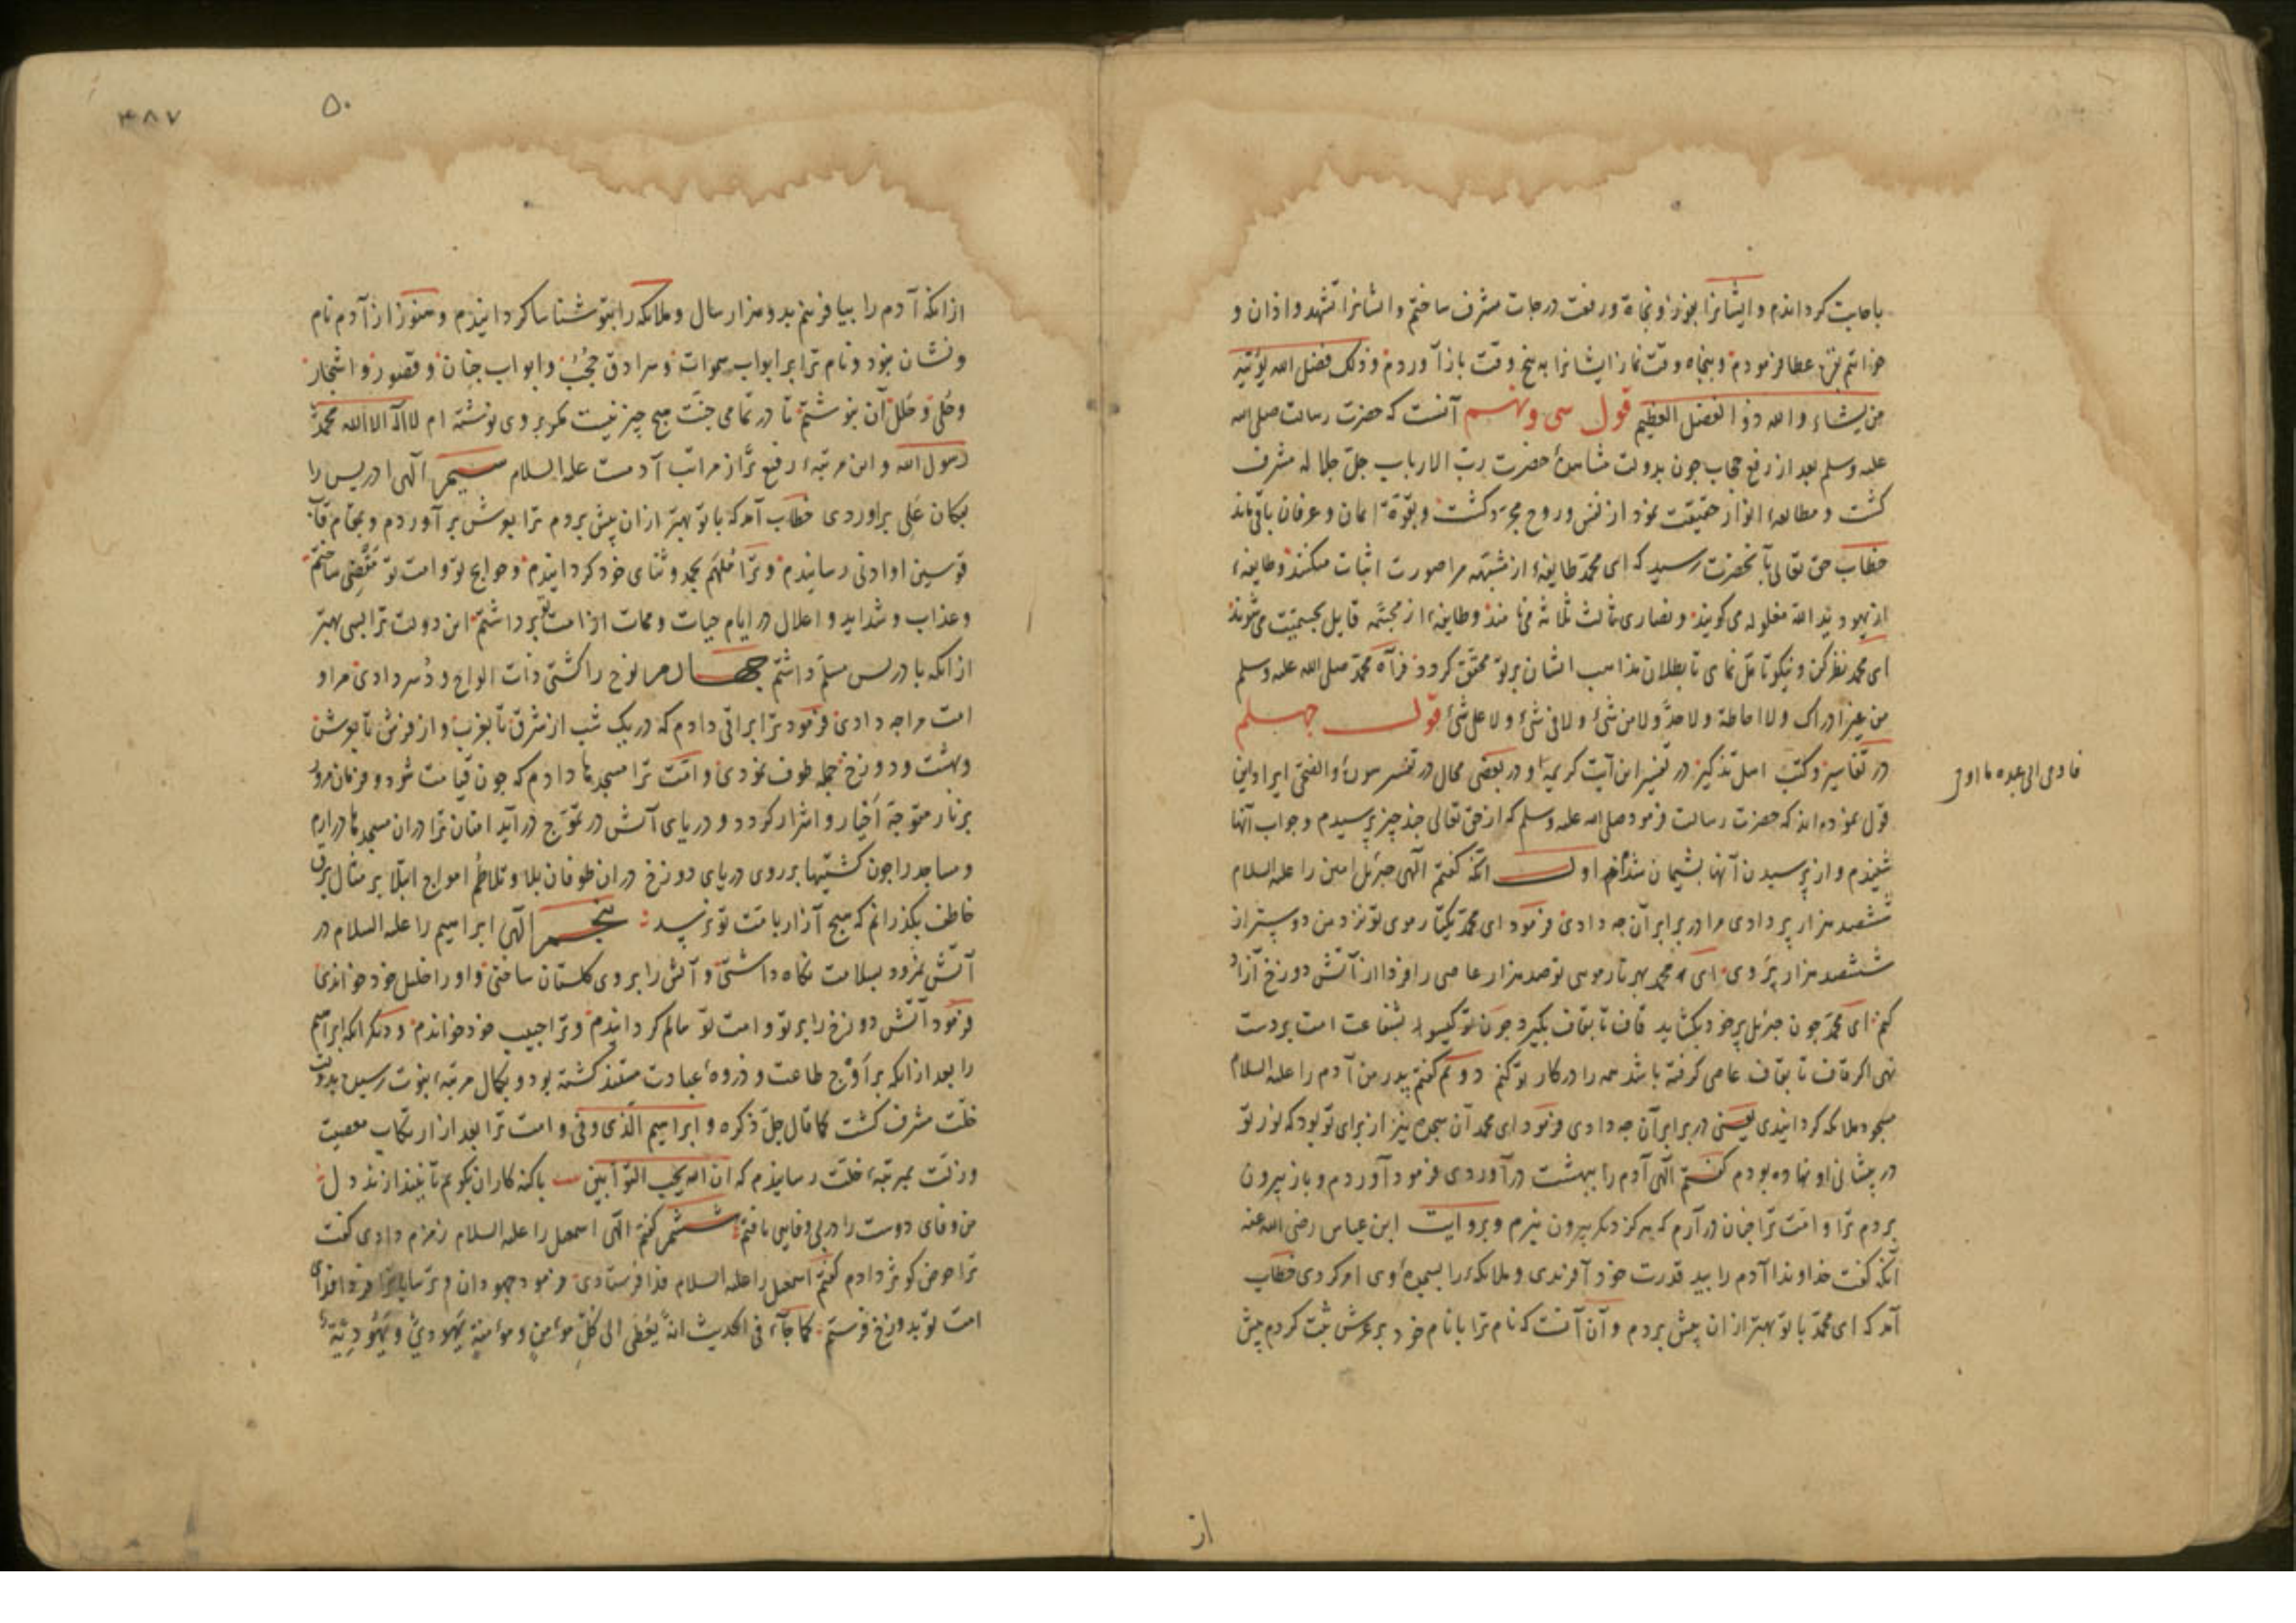 باجابت کرداندم و ایشانرا بفوز و نجاة و رفعت درجات مشرف ساختم و ایشانرا تشهد و اذان و
خواتیم بقره عطا فرمودم و پنجاه وقت نماز ایشانرا به پنج وقت باز آوردم و ذلک فضل الله یؤتیه
من یشاء والله ذو الفضل العظیم قول سی و نهم آنست که حضرت رسالت صلی الله
علیه وسلم بعد از رفع حجاب چون بدولت مشاهدهٔ حضرت رب الارباب جل جلاله مشرف
کشت و مطالعهٔ انوار حقیقت نمود از نفس و روح مجرد کشت و بقوّة ایمان و عرفان باقی ماند
خطاب حق تعالی بآنحضرت رسید که ای محمد طایفهٔ از مشبّهه مرا صورت اثبات میکنند و طایفهٔ
از یهود ید الله مغلوله می کویند و نصاری ثالث ثلاثه می نامند و طایفهٔ از مجسّمه قایل بجسمیّت می شوند
ای محمد نظر کن و نیکو تامل نمای تا بطلان مذاهب ایشان بر تو محقق کردد فرآه محمد صلی الله علیه وسلم
من غیر ادراک ولا احاطة ولا حدّ ولا من شئ ولا فی شئ ولا علی شئ قول چهلم
در تفاسیر و کتب اهل تذکیر در تفسیر این آیت کریمه و در بعضی محال در تفسیر سورهٔ والضحی ایراد این
فاوحی الی عبده ما اوحی
قول نموده اند که حضرت رسالت فرمود صلی الله علیه وسلم که از حق تعالی چند چیز پرسیدم و جواب آنها
شنیدم و از پرسیدن آنها پشیمان شدم اول آنکه کفتم الهی جبرئیل امین را علیه السلام
ششصد هزار پر دادی مرا در برابر آن چه دادی فرمود ای محمد یکتار موی تو نزد من دوستر از
ششصد هزار پر وی ای محمد بهر تار موی تو صد هزار عاصی را فردا از آتش دوزخ آزاد
کنم ای محمد چون جبرئیل پر خود بکشاید قاف تا بقاف بکیرد چون تو کیسو بشفاعت امت بر دست
نهی اکر قاف تا بقاف عاصی کرفته باشد همه را در کار تو کنم دوم کفتم پدر من آدم را علیه السلام
مسجود ملائکه کردانیدی یعنی در برابر آن چه دادی فرمود ای محمد آن سجده نیز از برای تو بود که نور تو
در پیشانی او نهاده بودم کفتم الهی آدم را ببهشت درآوردی فرمود آوردم و باز بیرون
بردم ترا و امت ترا چنان درآرم که هرکز دیکر بیرون نبرم و بروایت ابن عباس رضی الله عنه
آنکه کفت خداوندا آدم را بید قدرت خود آفریدی و ملائکه را بسجدهٔ وی امر کردی خطاب
آمد که ای محمد با تو بهتر از ان پیش بردم و آن آنست که نام ترا با نام خود بر عرش ثبت کردم پیش
از
۵۰
۳۸۷
ازانکه آدم را بیافرینم بدو هزار سال و ملائکه را بتو شناسا کردانیدم و هنوز از آدم نام
و نشان نبود و نام ترا بر ابواب سموات و سرادق حجب و ابواب جنان و قصور و اشجار
و حلی و حلل آن بنوشتم تا در تمامی جنت هیچ چیز نیست مکر بر وی نوشته ام لا اله الا الله محمد
رسول الله و این مرتبهٔ رفیع تر از مراتب آدمست علیه السلام سیم الهی ادریس را
بمکان علی براوردی خطاب آمد که با تو بهتر از ان پیش بردم ترا بعرش برآوردم و بمقام قاب
قوسین او ادنی رسانیدم و ترا ملهم بحمد و ثنای خود کردانیدم و حوایج تو و امت تو مقضی ساختم
و عذاب و شداید و اعلال در ایام حیات و ممات از امت تو برداشتم این دولت ترا بسی بهتر
ازانکه با ادریس مسلم داشتم چهارم نوح را کشتی ذات الواح و دسر دادی مرا و
امت مرا چه دادی فرمود ترا براقی دادم که در یک شب از مشرق تا بغرب و از فرش تا بعرش
و بهشت و دوزخ جمله طوف نمودی و امت ترا مسجدها دادم که چون قیامت شود و فرمان مرور
بر نار متوجه اخیار و اشرار کردد و دریای آتش در تموّج درآید امتان ترا دران مسجدها درارم
و مساجد را چون کشتیها بر روی دریای دوزخ دران طوفان بلا و تلاطم امواج ابتلا بر مثال برق
خاطف بکذرانم که هیچ آزار بامت تو نرسد پنجم الهی ابراهیم را علیه السلام در
آتش نمرود بسلامت نکاه داشتی و آتش را بر وی کلستان ساختی و او را خلیل خود خواندی
فرمود آتش دوزخ را بر تو و امت تو سالم کردانیدم و ترا حبیب خود خواندم و دیکر انکه ابراهیم
را بعد از انکه بر اوج طاعت و ذروهٔ عبادت مستعد کشته بود و بکمال مرتبهٔ نبوت رسیده بدولت
خلّت مشرف کشت کما قال جلّ ذکره و ابراهیم الذی وفی و امت ترا بعد از ارتکاب معصیت
و زلت بمرتبهٔ خلت رسانیدم که ان الله یحب التوابین با کنه کاران بکویم تا نیندازند دل
من وفای دوست را در بی وفایی یافتم ششم کفتم الهی اسمعیل را علیه السلام زمزم دادی کفت
ترا حوض کوثر دادم کفتم اسمعیل را علیه السلام فدا فرستادی فرمود جهودان و ترسایان را فردا فدای
امت تو بدوزخ فرستم کما جاء فی الحدیث انه یعطی الی کل مؤمن و مؤمنة یهودی و یهودیة